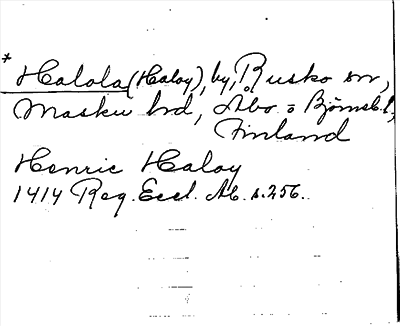 * Halola (Haloy), by, Rusko sn,
Masku hrd, Åbo = Björneb. l.,
Finland
Henric Haloy
1414 Reg. Eccl. Ab. s. 256.